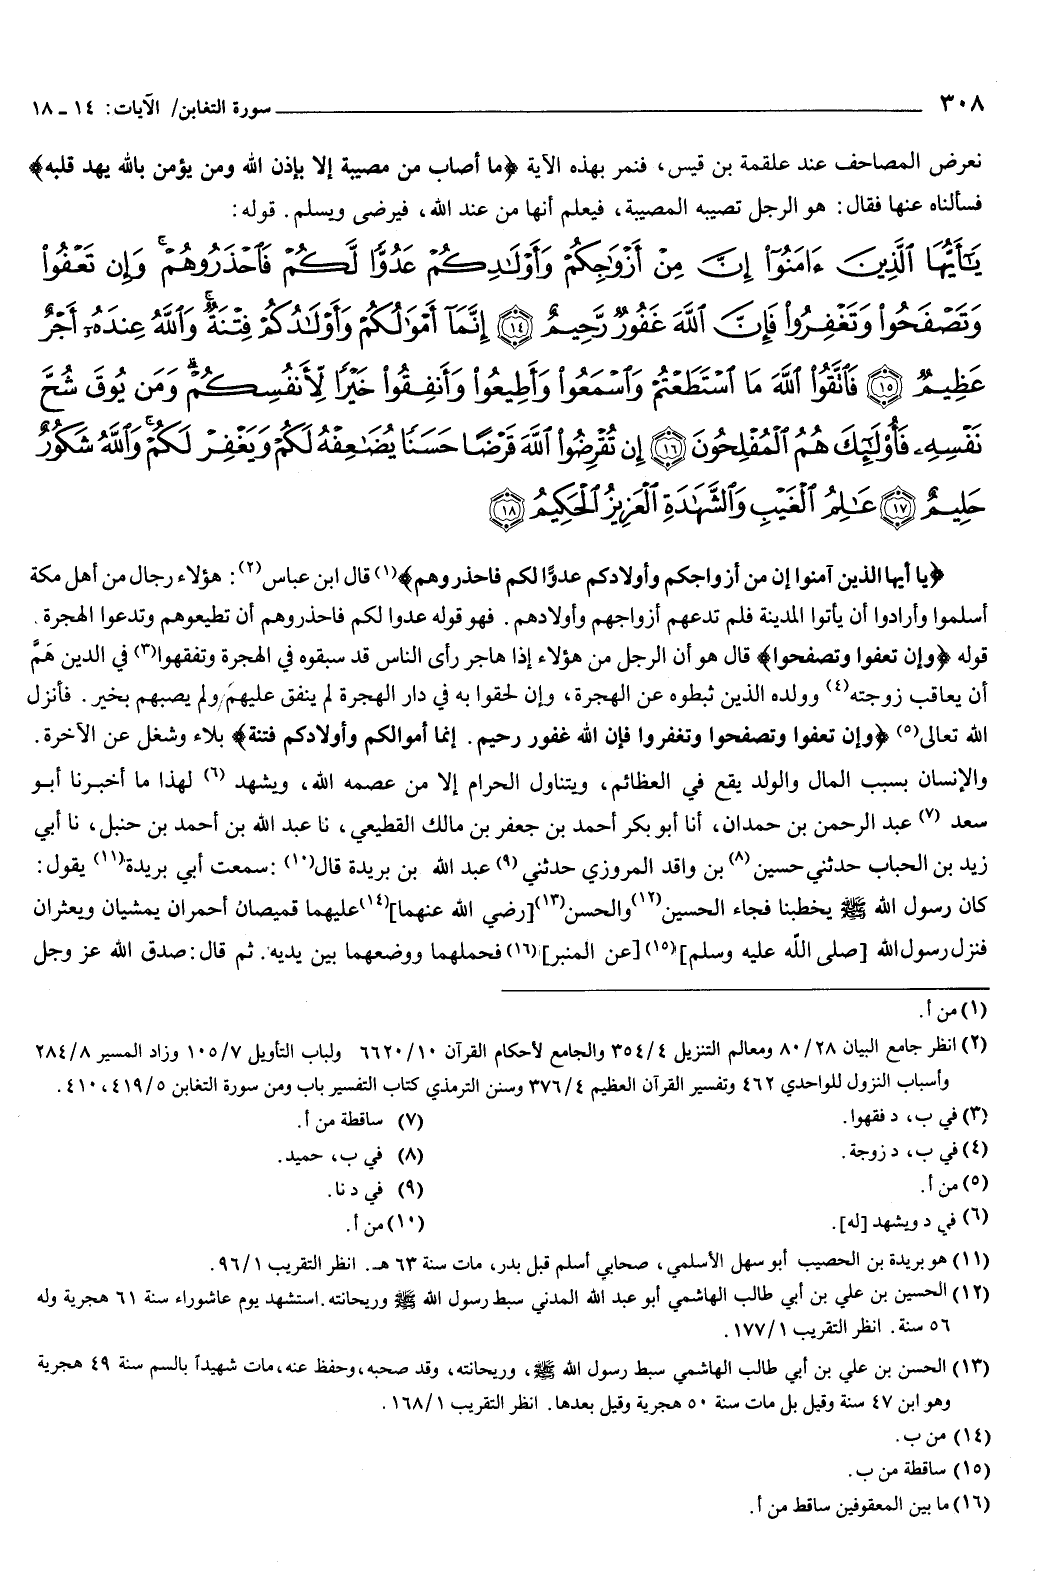 ٣٠٨ سورة التغابن/ الآيات: ١٤ ـ ١٨
نعرض المصاحف عند علقمة بن قيس، فنمر بهذه الآية ﴿ما أصاب من مصيبة إلا بإذن الله ومن يؤمن بالله يهد قلبه﴾
فسألناه عنها فقال: هو الرجل تصيبه المصيبة، فيعلم أنها من عند الله، فيرضى ويسلم. قوله:
يَٰٓأَيُّهَا ٱلَّذِينَ ءَامَنُوٓا۟ إِنَّ مِنْ أَزْوَٰجِكُمْ وَأَوْلَٰدِكُمْ عَدُوًّا لَّكُمْ فَٱحْذَرُوهُمْ ۚ وَإِن تَعْفُوا۟
وَتَصْفَحُوا۟ وَتَغْفِرُوا۟ فَإِنَّ ٱللَّهَ غَفُورٌ رَّحِيمٌ ﴿١٤﴾ إِنَّمَآ أَمْوَٰلُكُمْ وَأَوْلَٰدُكُمْ فِتْنَةٌ ۚ وَٱللَّهُ عِندَهُۥٓ أَجْرٌ
عَظِيمٌ ﴿١٥﴾ فَٱتَّقُوا۟ ٱللَّهَ مَا ٱسْتَطَعْتُمْ وَٱسْمَعُوا۟ وَأَطِيعُوا۟ وَأَنفِقُوا۟ خَيْرًا لِّأَنفُسِكُمْ ۗ وَمَن يُوقَ شُحَّ
نَفْسِهِۦ فَأُو۟لَٰٓئِكَ هُمُ ٱلْمُفْلِحُونَ ﴿١٦﴾ إِن تُقْرِضُوا۟ ٱللَّهَ قَرْضًا حَسَنًا يُضَٰعِفْهُ لَكُمْ وَيَغْفِرْ لَكُمْ ۚ وَٱللَّهُ شَكُورٌ
حَلِيمٌ ﴿١٧﴾ عَٰلِمُ ٱلْغَيْبِ وَٱلشَّهَٰدَةِ ٱلْعَزِيزُ ٱلْحَكِيمُ ﴿١٨﴾
﴿يا أيها الذين آمنوا إن من أزواجكم وأولادكم عدوًّا لكم فاحذروهم﴾(١) قال ابن عباس(٢): هؤلاء رجال من أهل مكة
أسلموا وأرادوا أن يأتوا المدينة فلم تدعهم أزواجهم وأولادهم. فهو قوله عدوا لكم فاحذروهم أن تطيعوهم وتدعوا الهجرة.
قوله ﴿وإن تعفوا وتصفحوا﴾ قال هو أن الرجل من هؤلاء إذا هاجر رأى الناس قد سبقوه في الهجرة وتفقهوا(٣) في الدين هَمَّ
أن يعاقب زوجته(٤) وولده الذين ثبطوه عن الهجرة، وإن لحقوا به في دار الهجرة لم ينفق عليهم، ولم يصبهم بخير. فأنزل
الله تعالى(٥) ﴿وإن تعفوا وتصفحوا وتغفروا فإن الله غفور رحيم. إنما أموالكم وأولادكم فتنة﴾ بلاء وشغل عن الآخرة.
والإنسان بسبب المال والولد يقع في العظائم، ويتناول الحرام إلا من عصمه الله، ويشهد (٦) لهذا ما أخبرنا أبو
سعد (٧) عبد الرحمن بن حمدان، أنا أبو بكر أحمد بن جعفر بن مالك القطيعي، نا عبد الله بن أحمد بن حنبل، نا أبي
زيد بن الحباب حدثني حسين(٨) بن واقد المروزي حدثني(٩) عبد الله بن بريدة قال(١٠): سمعت أبي بريدة(١١) يقول:
كان رسول الله ﷺ يخطبنا فجاء الحسين(١٢) والحسن(١٣)[رضي الله عنهما](١٤) عليهما قميصان أحمران يمشيان ويعثران
فنزل رسول الله [صلى الله عليه وسلم](١٥)[عن المنبر](١٦) فحملهما ووضعهما بين يديه. ثم قال: صدق الله عز وجل
(١) من أ.
(٢) انظر جامع البيان ٨٠/٢٨ ومعالم التنزيل ٣٥٤/٤ والجامع لأحكام القرآن ٦٦٢٠/١٠ ولباب التأويل ١٠٥/٧ وزاد المسير ٢٨٤/٨
وأسباب النزول للواحدي ٤٦٢ وتفسير القرآن العظيم ٣٧٦/٤ وسنن الترمذي كتاب التفسير باب ومن سورة التغابن ٤١٩/٥، ٤١٠.
(٣) في ب، د فقهوا. (٧) ساقطة من أ.
(٤) في ب، د زوجة. (٨) في ب، حميد.
(٥) من أ. (٩) في د نا.
(٦) في د ويشهد [له]. (١٠) من أ.
(١١) هو بريدة بن الحصيب أبو سهل الأسلمي، صحابي أسلم قبل بدر، مات سنة ٦٣ هـ. انظر التقريب ٩٦/١.
(١٢) الحسين بن علي بن أبي طالب الهاشمي أبو عبد الله المدني سبط رسول الله ﷺ وريحانته. استشهد يوم عاشوراء سنة ٦١ هجرية وله
٥٦ سنة. انظر التقريب ١٧٧/١.
(١٣) الحسن بن علي بن أبي طالب الهاشمي سبط رسول الله ﷺ، وريحانته، وقد صحبه، وحفظ عنه، مات شهيداً بالسم سنة ٤٩ هجرية
وهو ابن ٤٧ سنة وقيل بل مات سنة ٥٠ هجرية وقيل بعدها. انظر التقريب ١٦٨/١.
(١٤) من ب.
(١٥) ساقطة من ب.
(١٦) ما بين المعقوفين ساقط من أ.